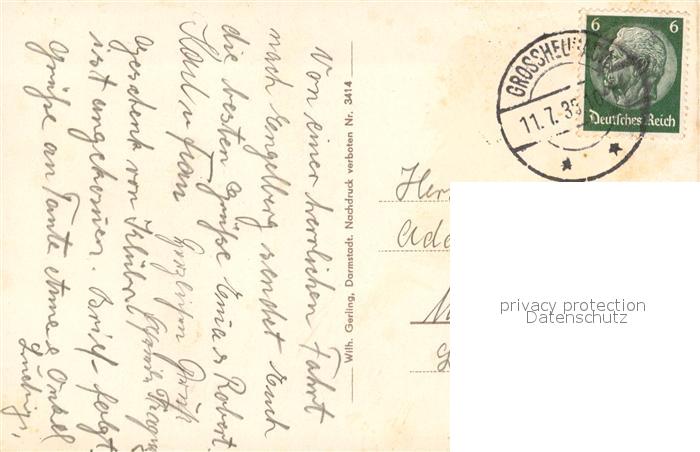 Von einer herrlichen Fahrt
nach Engelberg sendet Euch
die besten Grüße Euer Robert.
Karl u Frau Herzlichen Gruß
Geschenk von
ist angekommen. Brief folgt
Grüße an Tante Anna & Onkel
Ludwig.
Wilh. Gerling, Darmstadt. Nachdruck verboten Nr. 3414
6 6
Deutsches Reich
11.7.39
privacy protection
Datenschutz